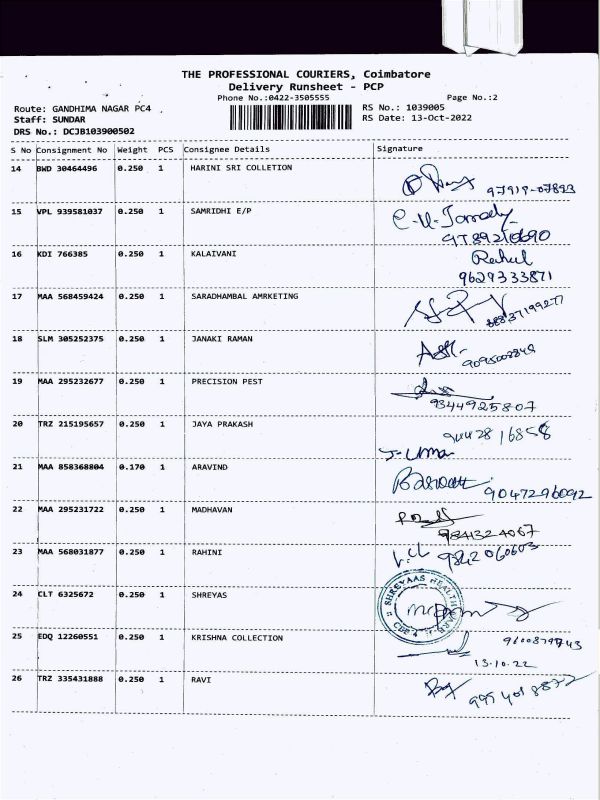 THE PROFESSIONAL COURIERS, Coimbatore
Delivery Runsheet - PCP
Phone No.:0422-3505555 Page No.:2
Route: GANDHIMA NAGAR PC4 RS No.: 1039005
Staff: SUNDAR RS Date: 13-Oct-2022
DRS No.: DCJB103900502
S No Consignment No Weight PCS Consignee Details Signature
14 BWD 30464496 0.250 1 HARINI SRI COLLETION
97919-07893
15 VPL 939581037 0.250 1 SAMRIDHI E/P
16 KDI 766385 0.250 1 KALAIVANI Rahul
9629333871
17 MAA 568459424 0.250 1 SARADHAMBAL AMRKETING
18 SLM 305252375 0.250 1 JANAKI RAMAN
19 MAA 295232677 0.250 1 PRECISION PEST
9344925807
20 TRZ 215195657 0.250 1 JAYA PRAKASH 9442816858
J-Uma
21 MAA 858368804 0.170 1 ARAVIND
9047296092
22 MAA 295231722 0.250 1 MADHAVAN
9841324067
23 MAA 568031877 0.250 1 RAHINI 9842060603
24 CLT 6325672 0.250 1 SHREYAS SHREYAAS HEALTH CARE
25 EDQ 12260551 0.250 1 KRISHNA COLLECTION
13.10.22
26 TRZ 335431888 0.250 1 RAVI